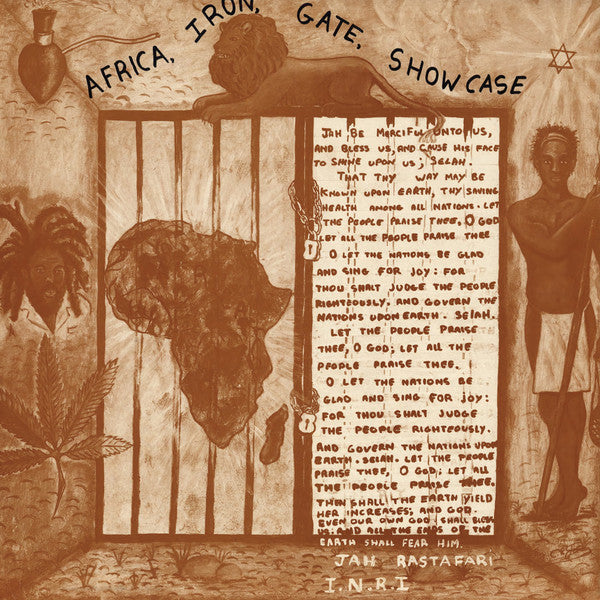 AFRICA, IRON, GATE, SHOWCASE
JAH BE MERCIFUL UNTO US,
AND BLESS US, AND CAUSE HIS FACE
TO SHINE UPON US; SELAH.
THAT THY WAY MAY BE
KNOWN UPON EARTH, THY SAVING
HEALTH AMONG ALL NATIONS. LET
THE PEOPLE PRAISE THEE, O GOD
LET ALL THE PEOPLE PRAISE THEE
O LET THE NATIONS BE GLAD
AND SING FOR JOY: FOR
THOU SHALT JUDGE THE PEOPLE
RIGHTEOUSLY. AND GOVERN THE
NATIONS UPON EARTH. SELAH.
LET THE PEOPLE PRAISE
THEE, O GOD; LET ALL THE
PEOPLE PRAISE THEE.
O LET THE NATIONS BE
GLAD AND SING FOR JOY:
FOR THOU SHALT JUDGE
THE PEOPLE RIGHTEOUSLY.
AND GOVERN THE NATIONS UPON
EARTH. SELAH. LET THE PEOPLE
PRAISE THEE, O GOD; LET ALL
THE PEOPLE PRAISE THEE.
THEN SHALL THE EARTH YIELD
HER INCREASES; AND GOD.
EVEN OUR OWN GOD SHALL BLESS
US: AND ALL THE ENDS OF THE
EARTH SHALL FEAR HIM.
JAH RASTAFARI
I.N.R.I